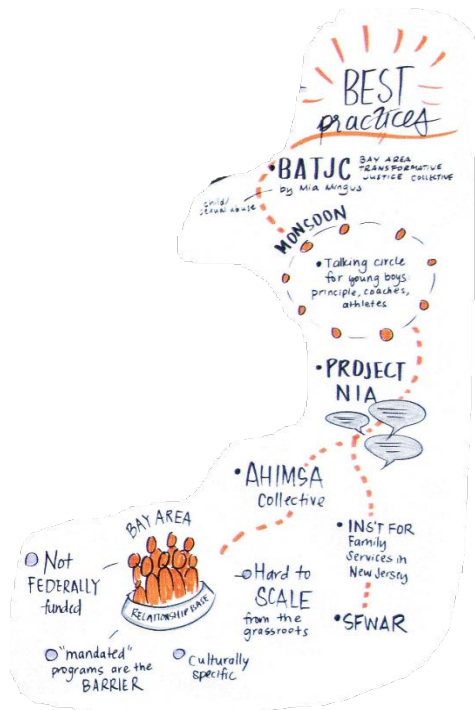 BEST
practices
• BATJC BAY AREA
TRANSFORMATIVE
JUSTICE COLLECTIVE
by Mia Mingus
child/
sexual abuse
MONSOON
• Talking circle
for young boys
principle, coaches,
athletes
• PROJECT
NIA
• AHIMSA
Collective
• INST FOR
Family
Services in
New Jersey
• SFWAR
BAY AREA
RELATIONSHIP BASE
Not
FEDERALLY
funded
"mandated"
programs are the
BARRIER
Culturally
specific
Hard to
SCALE
from the
grassroots